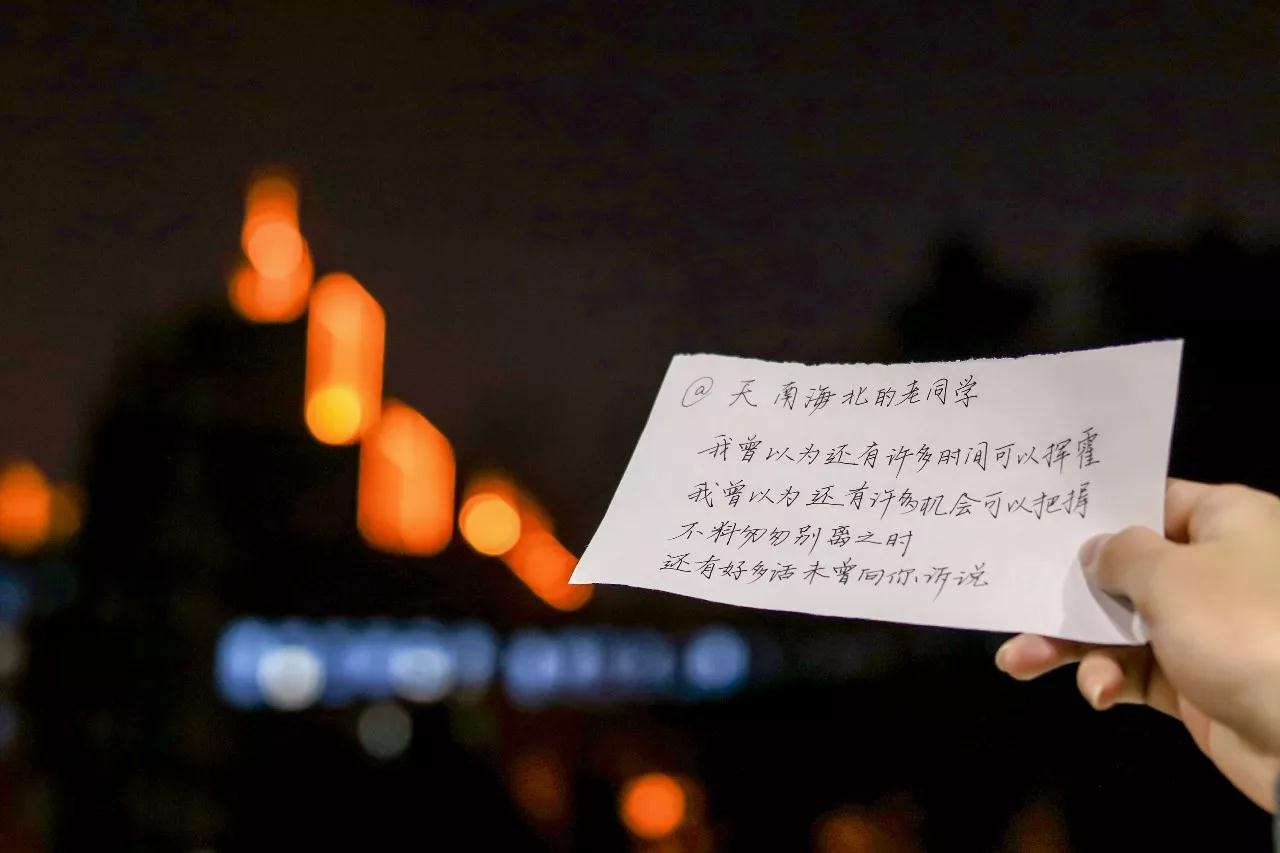 @天南海北的老同学
我曾以为还有许多时间可以挥霍
我曾以为还有许多机会可以把握
不料匆匆别离之时
还有好多话未曾向你诉说